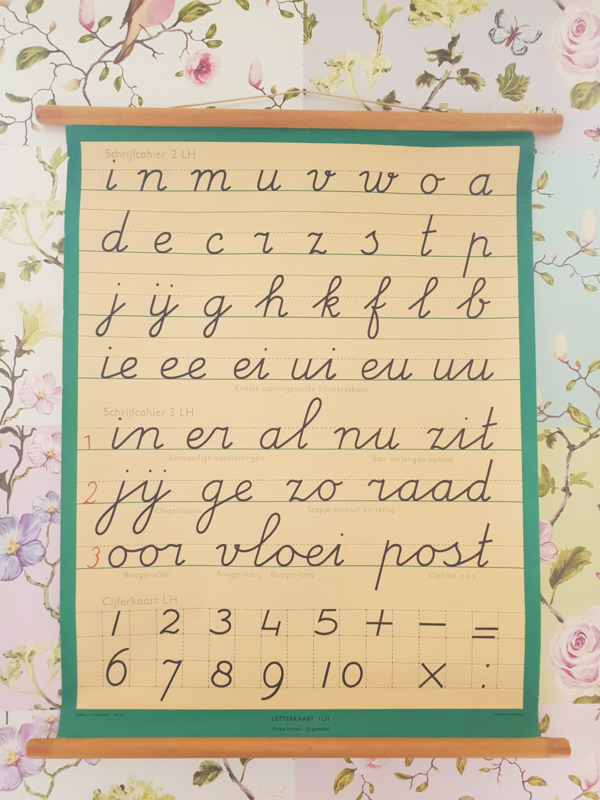 Schrijfcahier 2 LH
i n m u v w o a
d e c r z s t p
j ij g h k f l b
ie ee ei ui eu uu
Enkele samengestelde klinkertekens
Schrijfcahier 3 LH
1 in er al nu zit
Eenvoudige aansluitingen Een verlengde ophaal
2 jij ge zo raad
Onderlussen Stapje vooruit en terug
3 oor vloei post
Boogje-voor Boogje-hoog Boogje-laag Ophaal na s
Cijferkaart LH
1 2 3 4 5 + - =
6 7 8 9 10 × :
LETTERKAART 1 LH